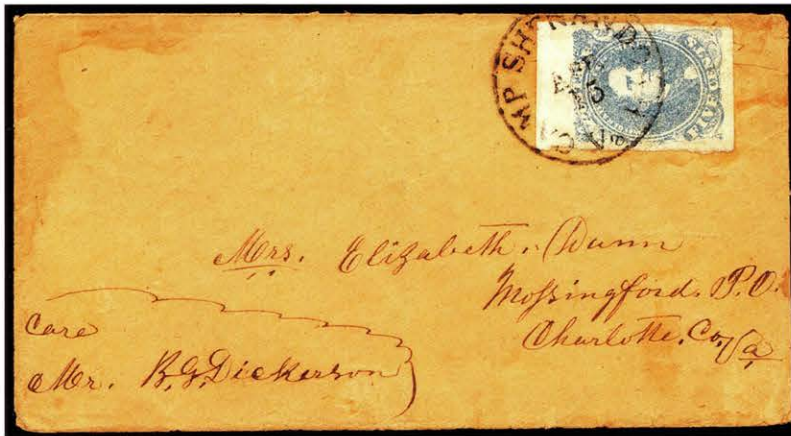 CAMP SHENANDOAH Va
Mrs. Elizabeth Dunn
Mossingford. P.O.
Charlotte. Co. Va
Care
Mr. B.G. Dickerson